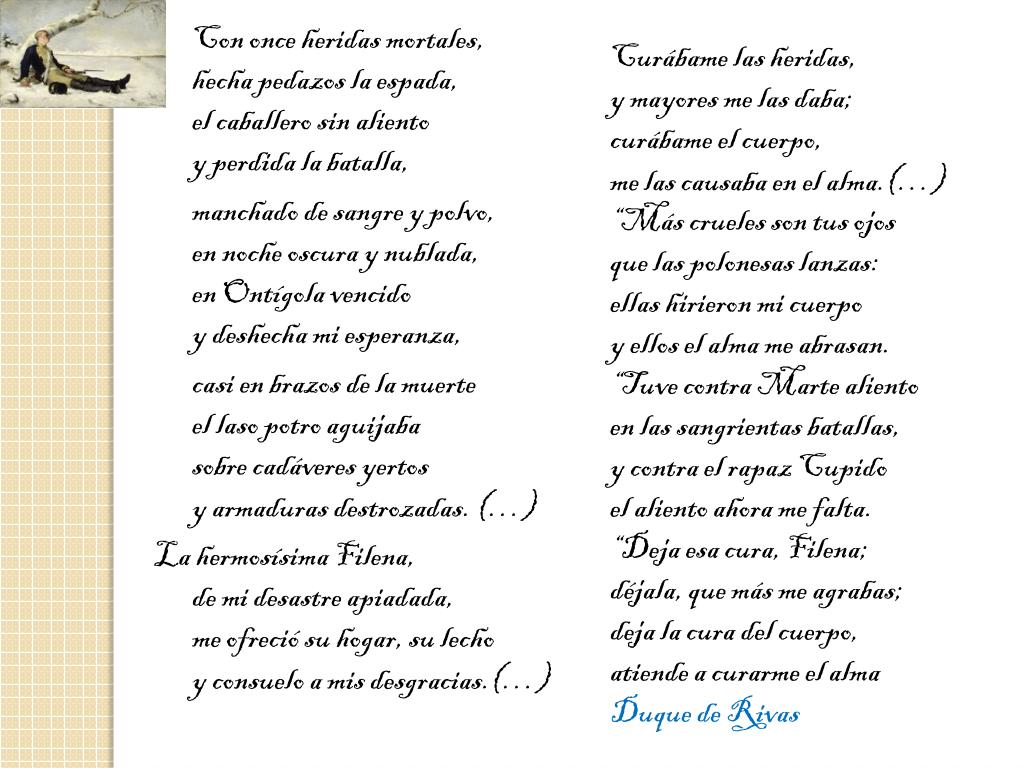 Con once heridas mortales,
hecha pedazos la espada,
el caballero sin aliento
y perdida la batalla,
manchado de sangre y polvo,
en noche oscura y nublada,
en Ontígola vencido
y deshecha mi esperanza,
casi en brazos de la muerte
el laso potro aguijaba
sobre cadáveres yertos
y armaduras destrozadas. (…)
La hermosísima Filena,
de mi desastre apiadada,
me ofreció su hogar, su lecho
y consuelo a mis desgracias. (…)
Curábame las heridas,
y mayores me las daba;
curábame el cuerpo,
me las causaba en el alma. (…)
“Más crueles son tus ojos
que las polonesas lanzas:
ellas hirieron mi cuerpo
y ellos el alma me abrasan.
“Tuve contra Marte aliento
en las sangrientas batallas,
y contra el rapaz Cupido
el aliento ahora me falta.
“Deja esa cura, Filena;
déjala, que más me agrabas;
deja la cura del cuerpo,
atiende a curarme el alma
Duque de Rivas